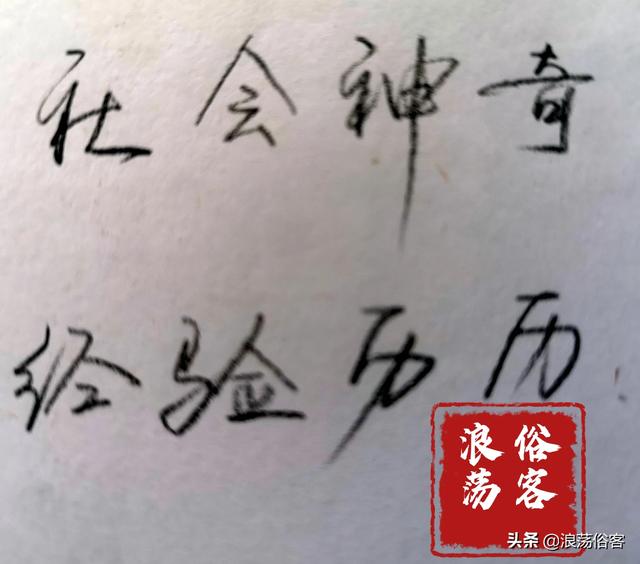 社会神奇
经验历历
浪荡俗客
头条 @浪荡俗客